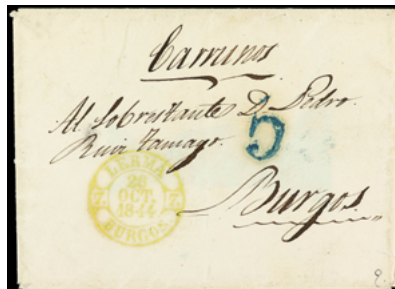 Caminos
Al Sobrestante D. Pedro
Ruiz Tamayo.
5
Burgos.
LERMA
26
OCT.
1844
BURGOS
9.